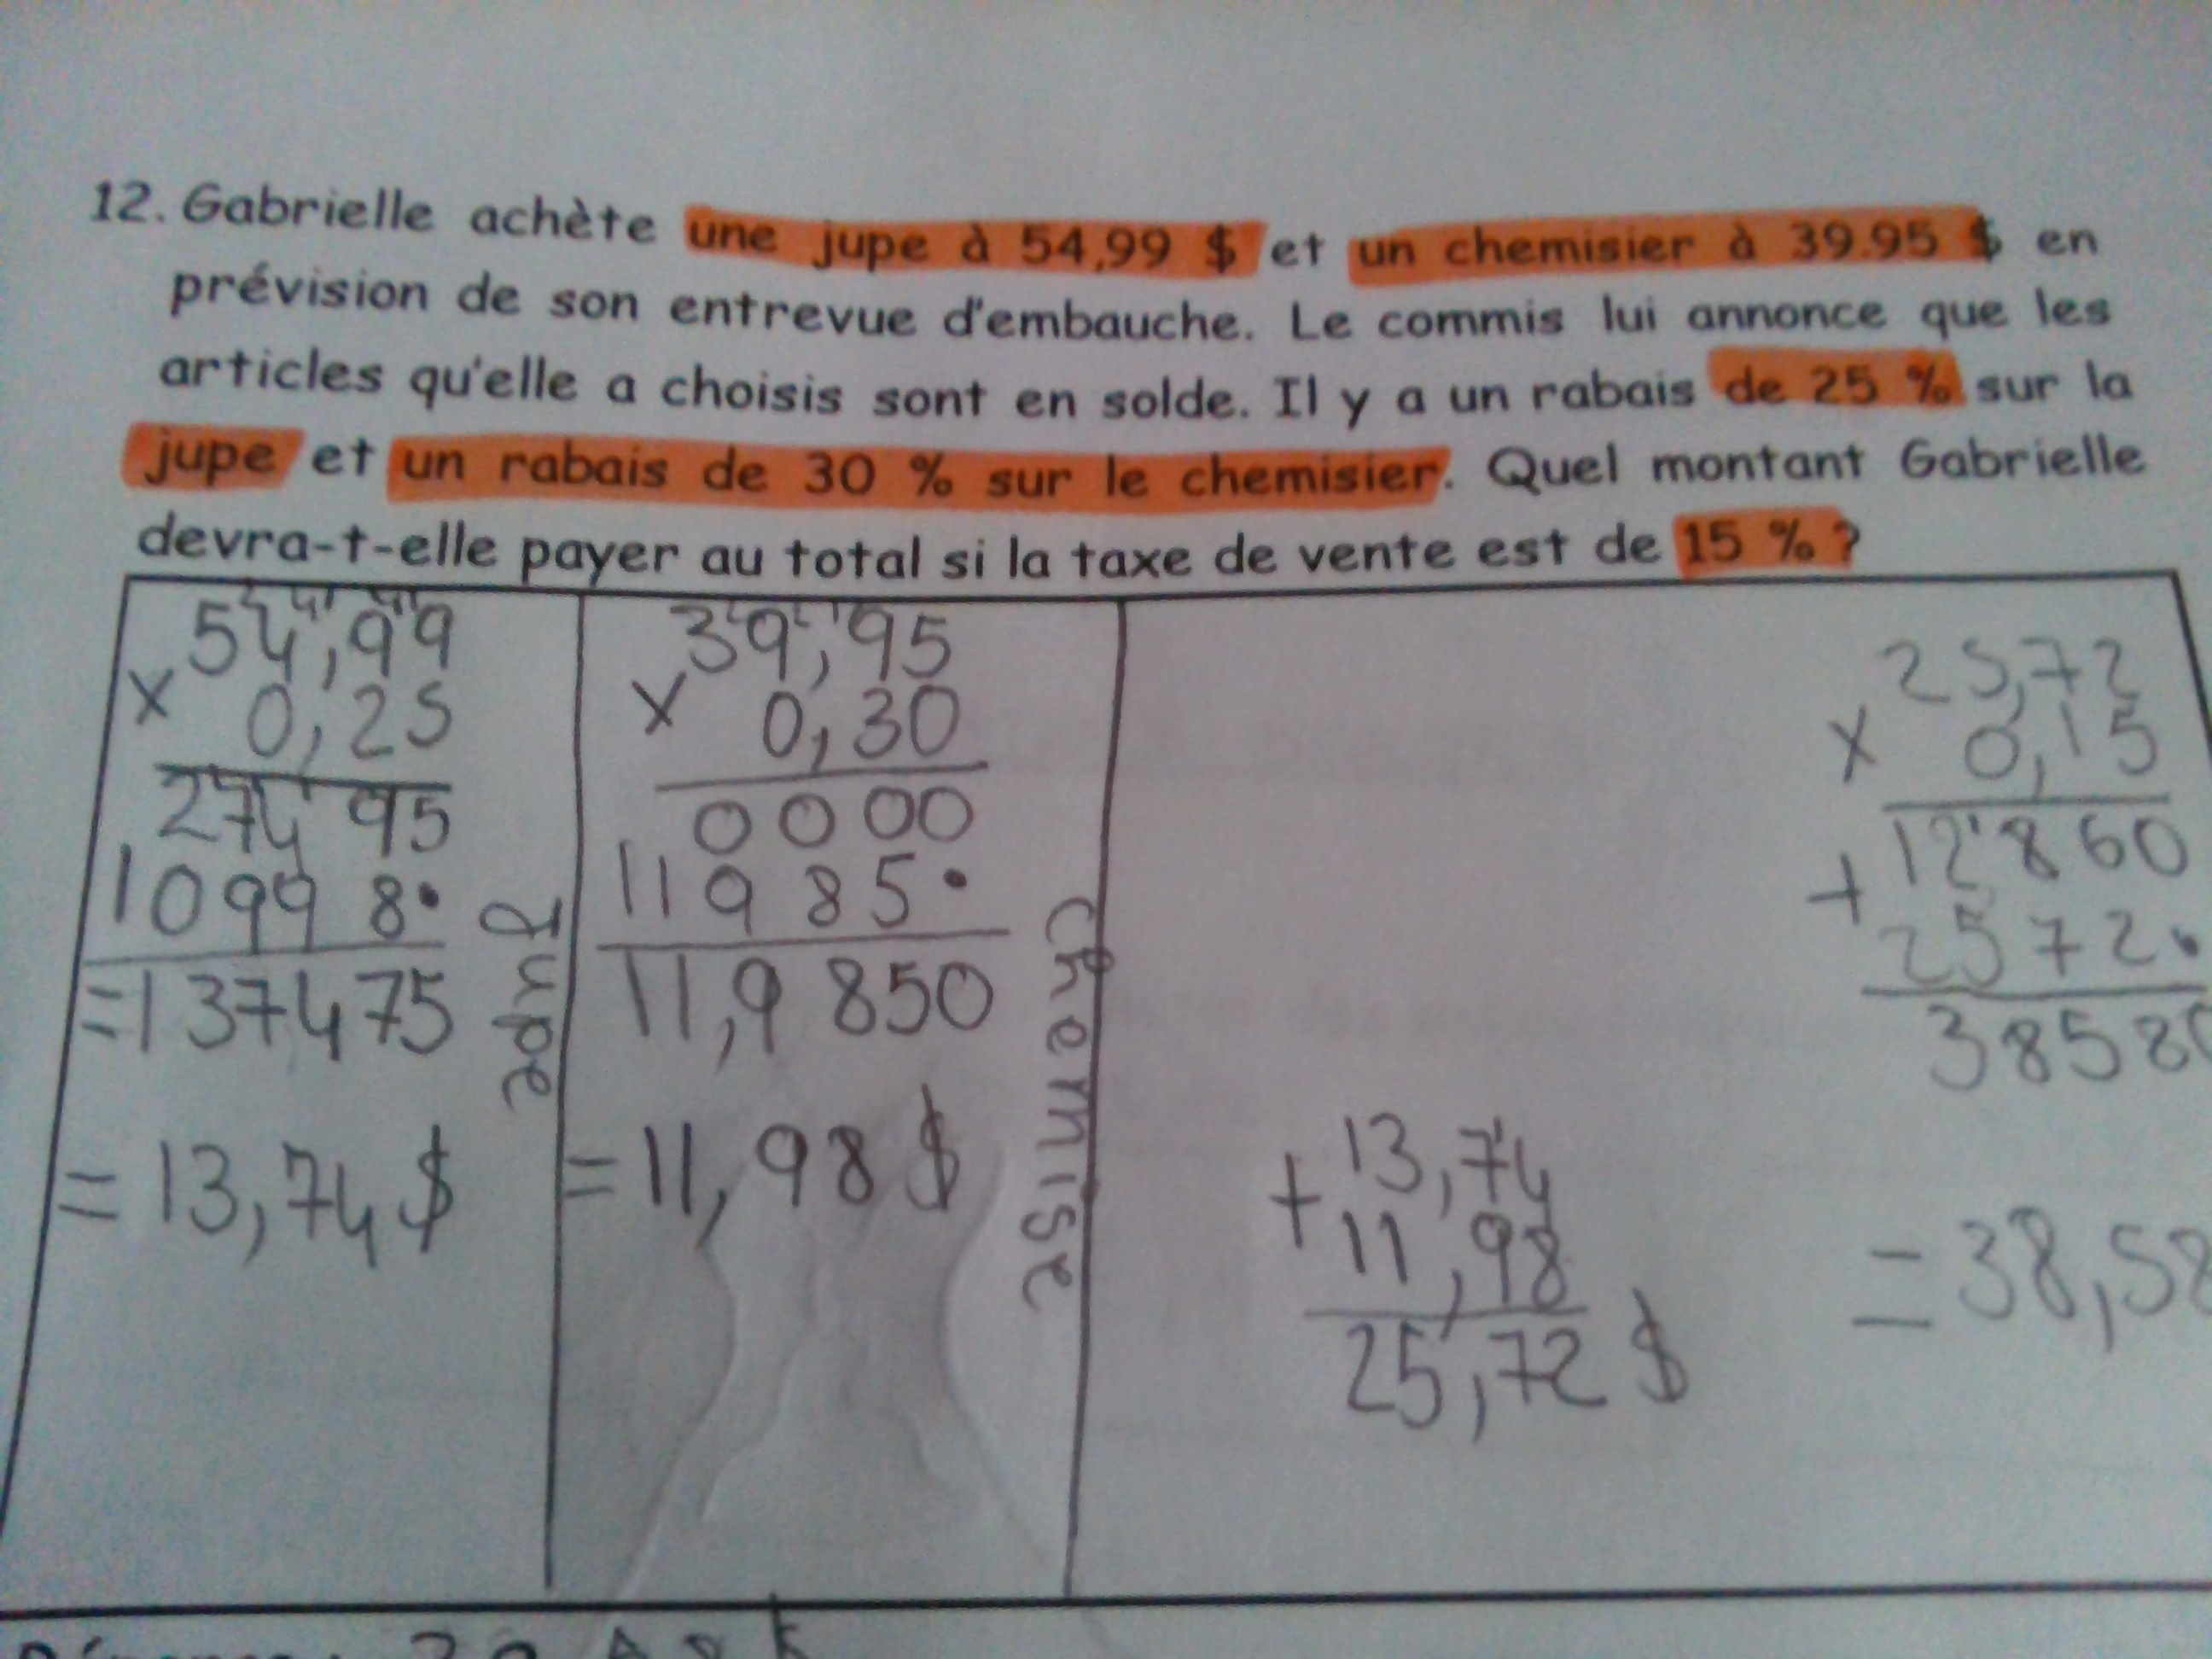 12. Gabrielle achète une jupe à 54,99 $ et un chemisier à 39.95 $ en
prévision de son entrevue d'embauche. Le commis lui annonce que les
articles qu'elle a choisis sont en solde. Il y a un rabais de 25 % sur la
jupe et un rabais de 30 % sur le chemisier. Quel montant Gabrielle
devra-t-elle payer au total si la taxe de vente est de 15 % ?
54,99
x 0,25
27495
10998•
=137475
= 13,74 $
Jupe
39,95
x 0,30
0000
11985•
11,9850
= 11,98 $
chemise
13,74
+ 11,98
25,72 $
25,72
x 0,15
12860
+ 2572•
38580
= 38,58